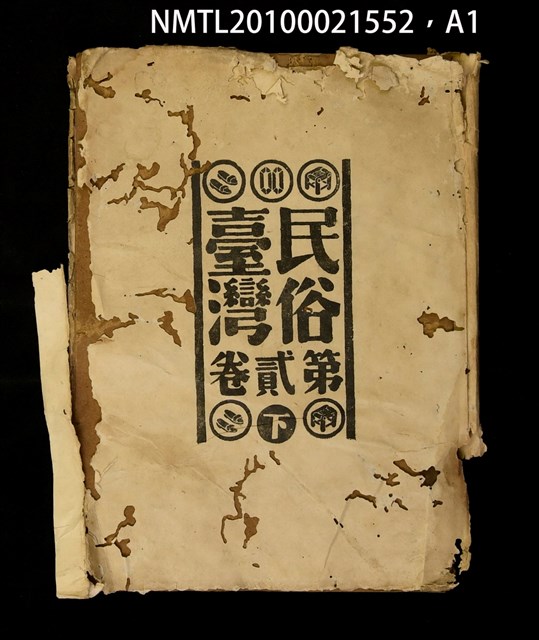 NMTL20100021552，A1
民俗
臺灣
第貳卷
下